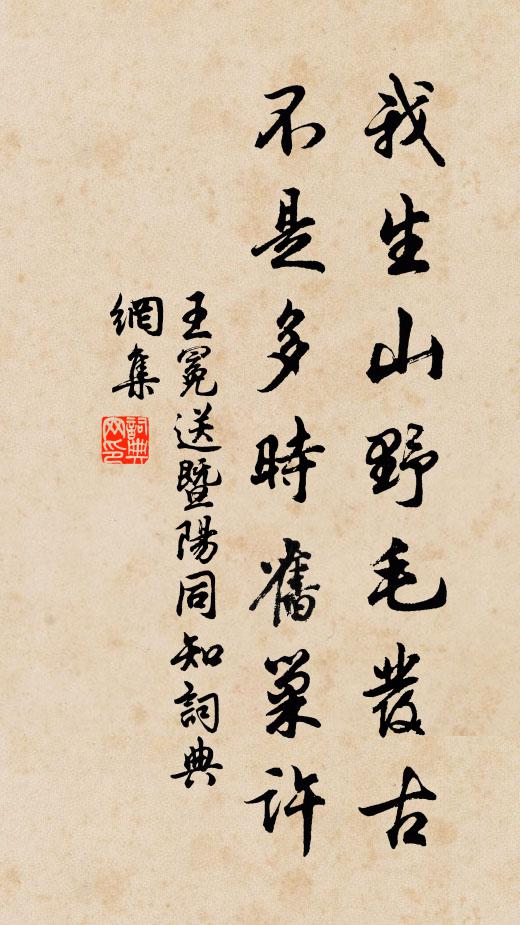 我生山野毛发古
不是多時舊巢許
王冕送暨陽同知詞典
網集
詞典
网印